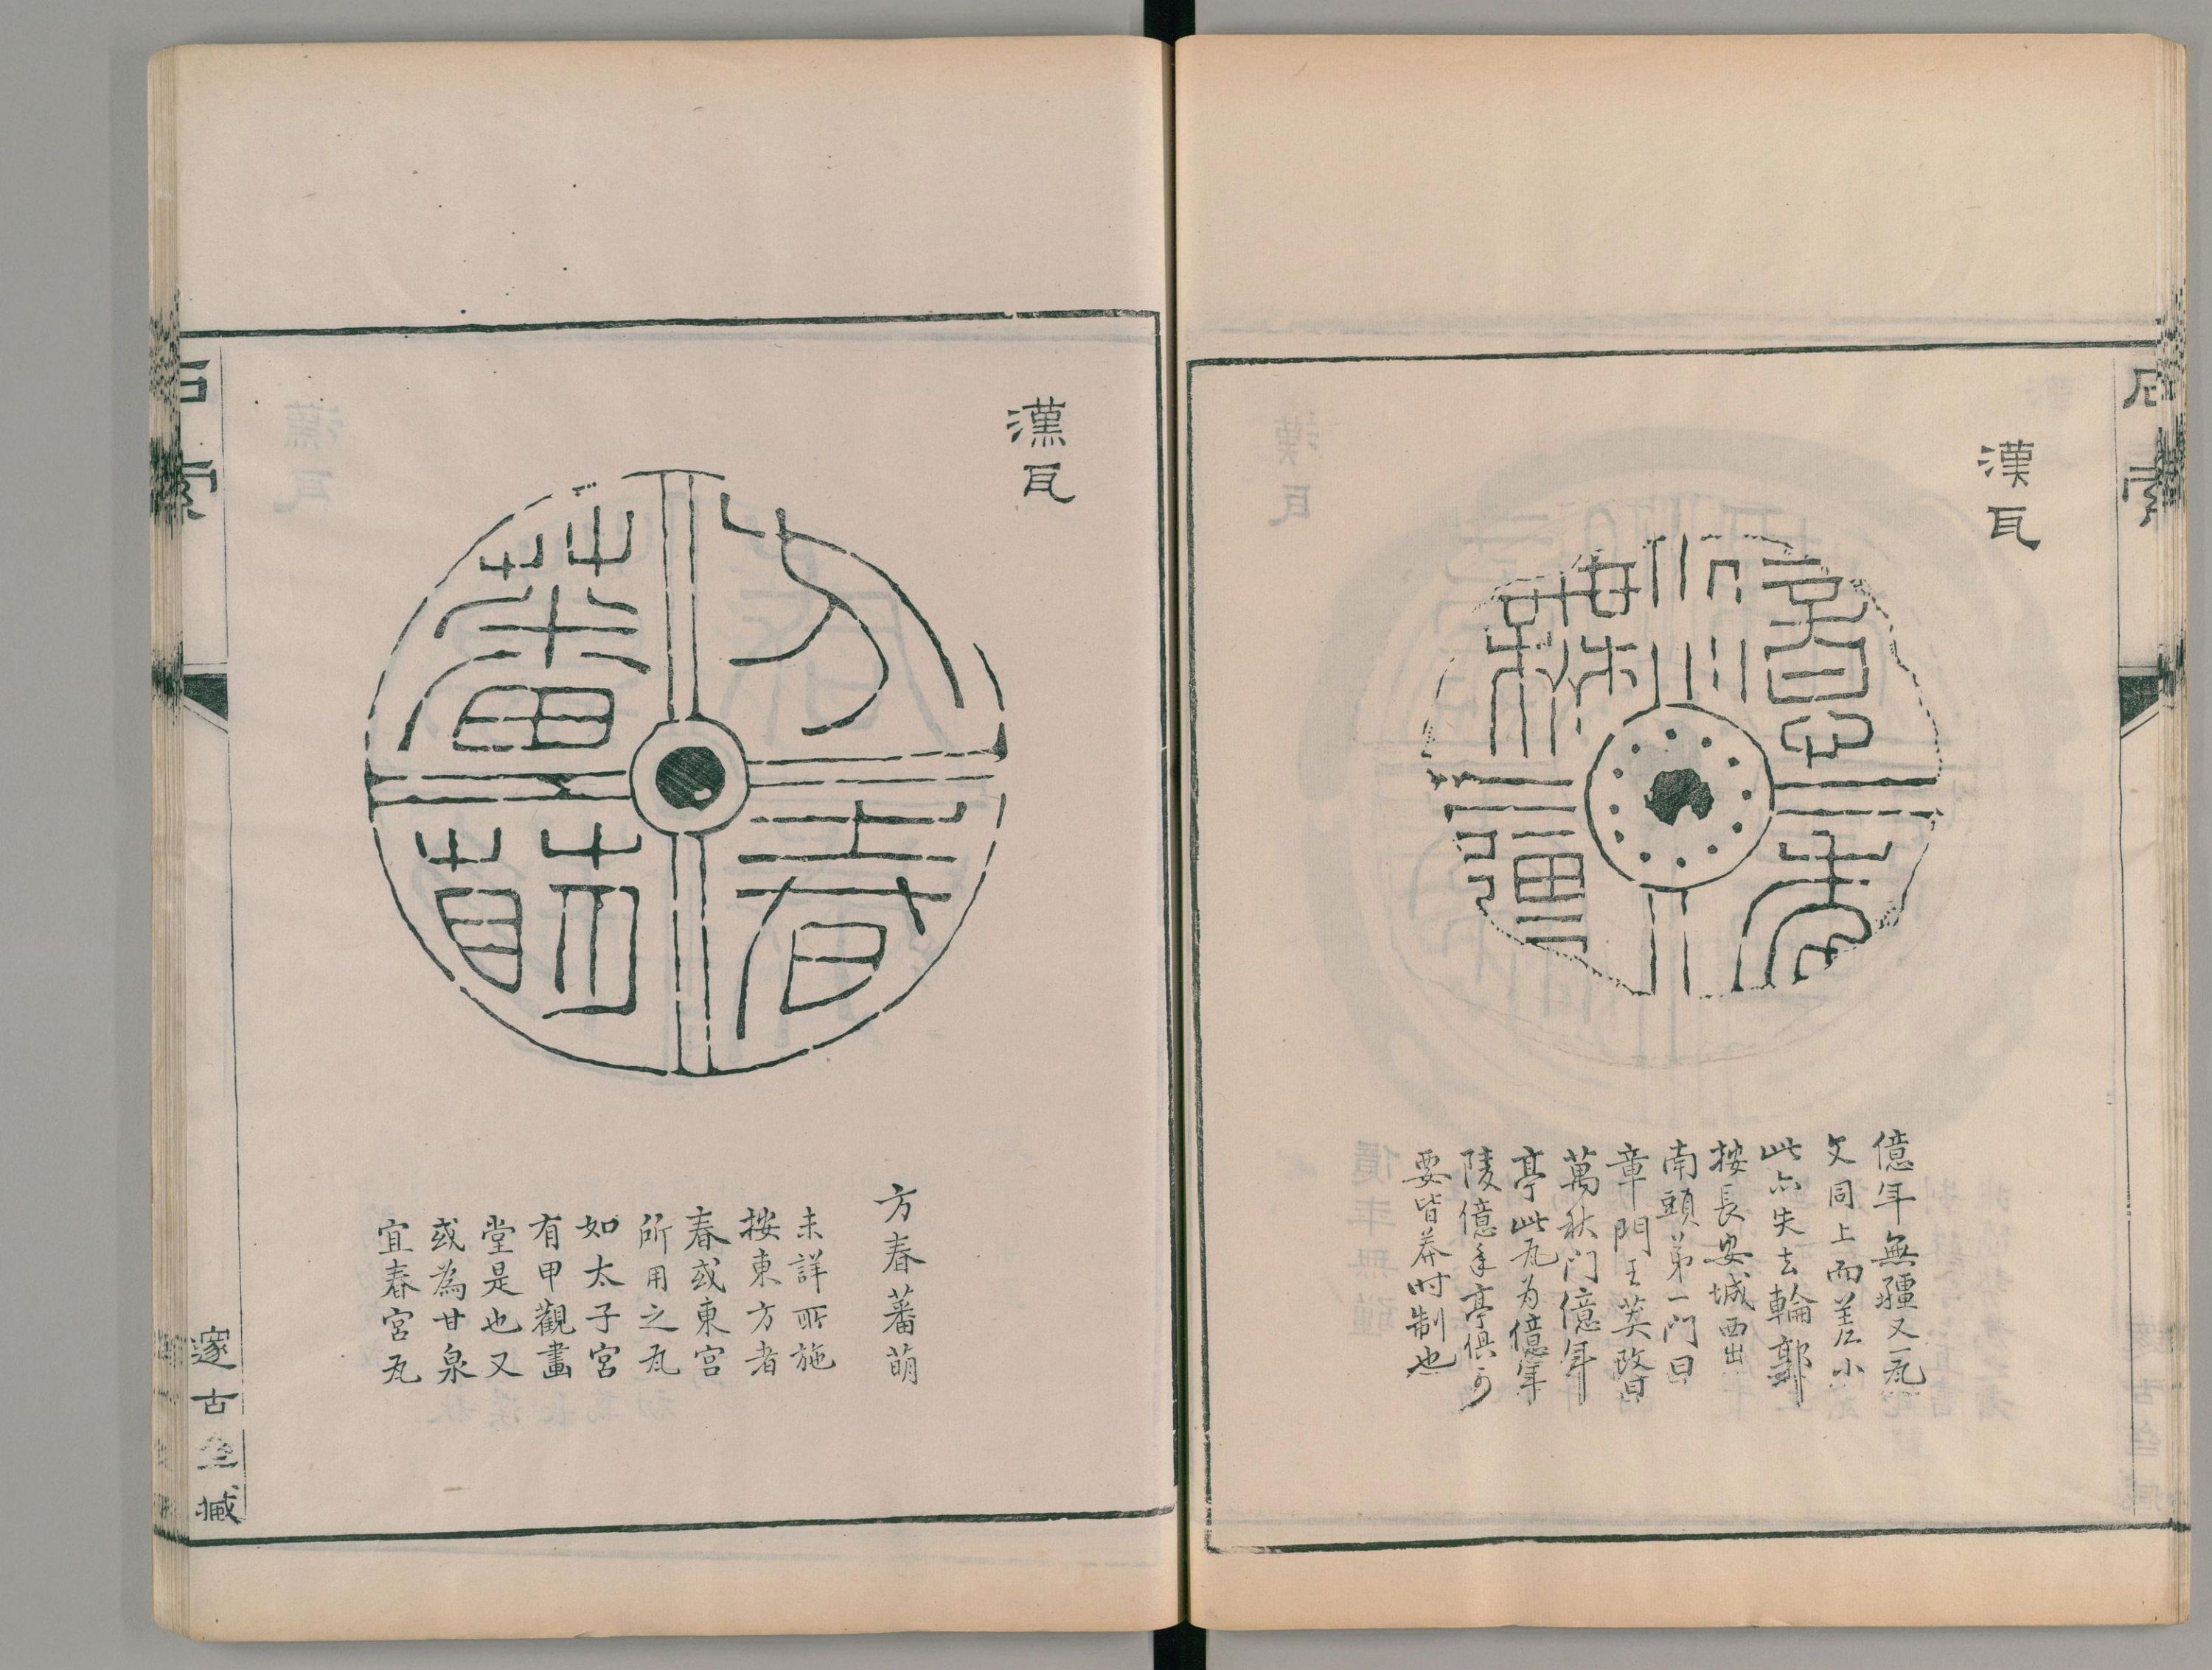 石索
漢瓦
億年無疆
億年無疆又一瓦
文同上而差小
此亦失去輪郭
按長安城西出
南頭第一門曰
章門王莽改曰
萬秋门億年
亭此瓦为億年
陵億年亭俱可
要皆莽时制也
漢瓦
方春蕃萌
方春蕃萌
未詳所施
按東方者
春或東宮
所用之瓦
如太子宮
有甲觀畫
堂是也又
或為甘泉
宜春宮瓦
石索
邃古𠫤臧